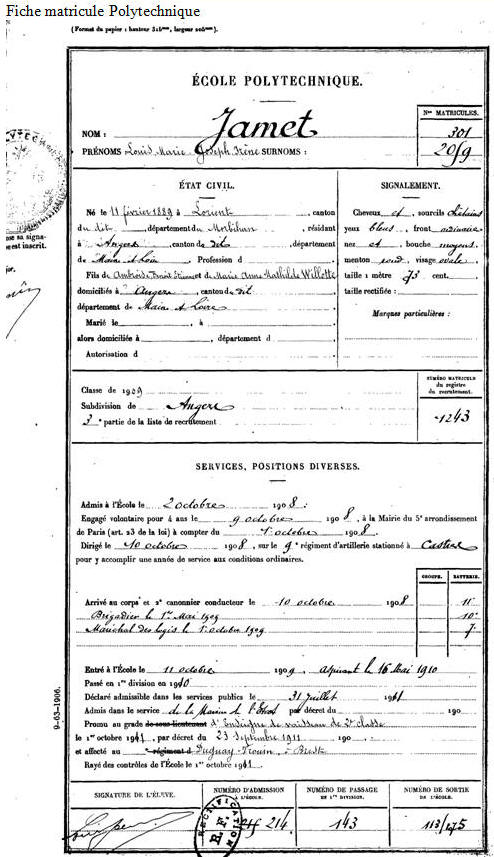 Fiche matricule Polytechnique
(Format du papier : hauteur 315mm, largeur 205mm).
ÉCOLE POLYTECHNIQUE.
NOM : Jamet
Nos MATRICULES.
301
PRÉNOMS Louis Marie Joseph Irène SURNOMS :
2059
ÉTAT CIVIL.
SIGNALEMENT.
Né le 11 février 1889 à Lorient, canton
du dit, département du Morbihan, résidant
à Angers, canton du dit, département
de Maine et Loire, Profession d
Fils de Ambroise Benoit Etienne et de Marie Anne Mathilde Willotte
domiciliés à Angers, canton du dit
département de Maine et Loire
Marié le , à
alors domiciliée à , département d
Autorisation d
Cheveux et, sourcils châtains
yeux bleus, front ordinaire
nez et, bouche moyens
menton rond, visage ovale
taille 1 mètre 73 cent.
taille rectifiée :
Marques particulières :
se sa signa-
e est inscrit.
Classe de 1909
Subdivision de Angers
3e partie de la liste de recrutement
NUMÉRO MATRICULE
du registre
du recrutement.
1243
SERVICES, POSITIONS DIVERSES.
Admis à l'École le 2 octobre 1908 :
Engagé volontaire pour 4 ans le 9 octobre 1908, à la Mairie du 5e arrondissement
de Paris (art. 23 de la loi) à compter du 1er octobre 1908.
Dirigé le 10 octobre 1908, sur le 9e régiment d'artillerie stationné à Castres
pour y accomplir une année de service aux conditions ordinaires.
GROUPE. BATTERIE.
Arrivé au corps et 2e canonnier conducteur le 10 octobre 1908 11e
Brigadier le 1er Mai 1909 10e
Maréchal des logis le 1er octobre 1909 7
Entré à l'École le 11 octobre 1909, aspirant le 16 Mai 1910
Passé en 1re division en 1910
Déclaré admissible dans les services publics le 31 juillet 1911
Admis dans le service de la Marine de l'Etat par décret du 190
Promu au grade de sous-lieutenant d'Enseigne de vaisseau de 2e classe
le 1er octobre 1911, par décret du 23 Septembre 1911
et affecté au régiment d Duguay-Trouin, à Brest
Rayé des contrôles de l'École le 1er octobre 1911.
9-63-1906.
SIGNATURE DE L'ÉLÈVE.
NUMÉRO D'ADMISSION
À L'ÉCOLE.
214
NUMÉRO DE PASSAGE
EN 1re DIVISION.
143
NUMÉRO DE SORTIE
DE L'ÉCOLE.
113/175
RECTIFICATION
R.F.